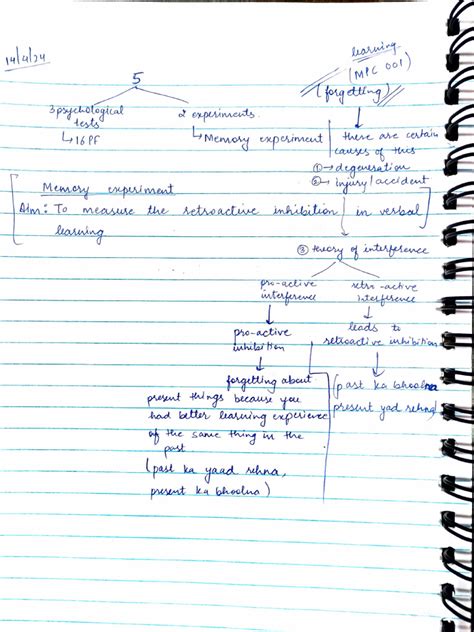 14/4/24
learning
(MPC 001)
(forgetting)
5
3 psychological
tests
↳ 16 PF
2 experiments
↳ Memory experiment
there are certain
causes of this
① → degeneration
② → injury/accident
Memory experiment
Aim: To measure the retroactive inhibition in verbal
learning
③ theory of interference
pro-active
interference
retro-active
interference
pro-active
inhibition
leads to
retroactive inhibition
forgetting about
present things because you
had better learning experience
of the same thing in the
past
(past ka yaad rehna,
present ka bhoolna)
(past ka bhoolna
present yad rehna)